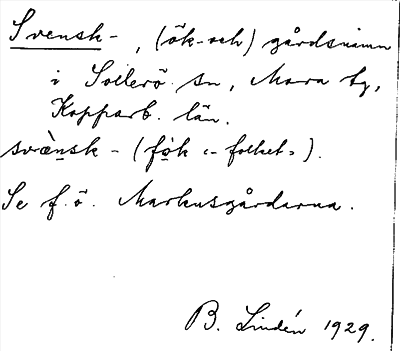 Svensk- , (ök- och) gårdsnamn
i Sollerö sn, Mora tg,
Kopparb. län.
svæ̀nsk- (fo̩k „-folket").
Se f.ö. Markusgårdarna.
B. Lindén 1929.